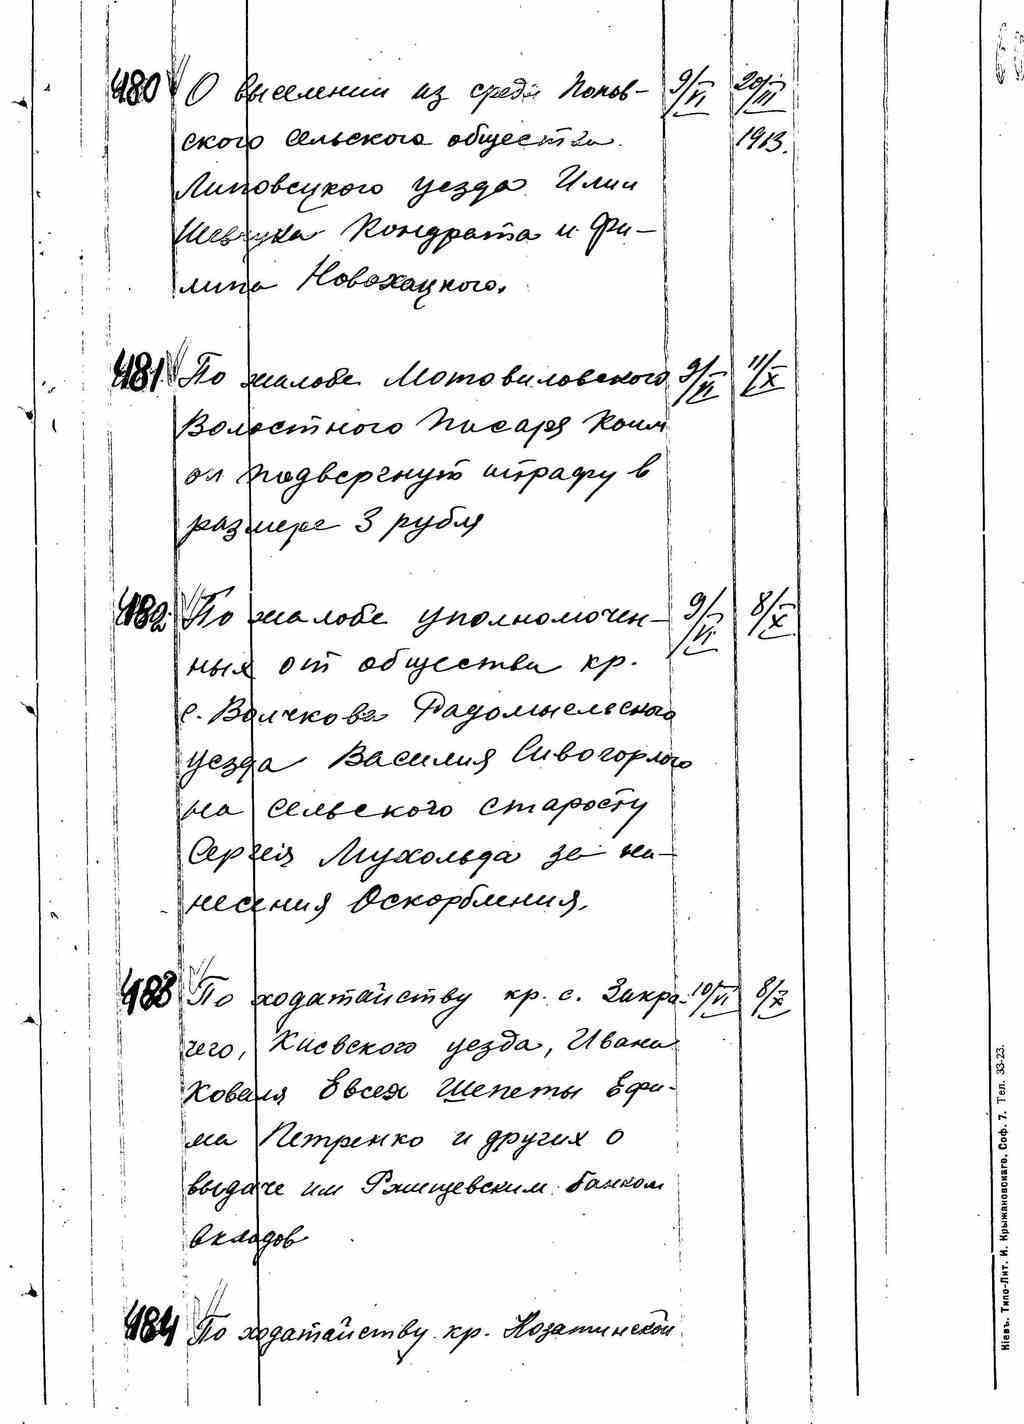 480 О выселении из среды Попов- 9/VI 20/III
ского сельского общества 1913.
Липовецкого уезда Илии
Шевчука Кондрата и Фи-
липа Новохацкого.
481. По жалобе Мотовиловского 9/VI 11/X
Волостного Писаря Коим
он подвергнут штрафу в
размере 3 рубля
482. По жалобе уполномочен- 9/VI 8/X
ных от общества кр.
с. Волчкова Радомысльского
уезда Василия Сивогорлого
на сельского старосту
Сергея Мухольда за на-
несения Оскорбления.
483 По ходатайству кр. с. Закра- 10/VI 8/X
чего, Киевского уезда, Ивана
Коваля Евсея Шепеты Ефи-
ма Петренко и других о
выдаче им Ржищевским банком
вкладов
484 По ходатайству кр. Козатинской
Кіевъ. Типо-Лит. И. Крыжановскаго, Соф. 7. Тел. 33-23.